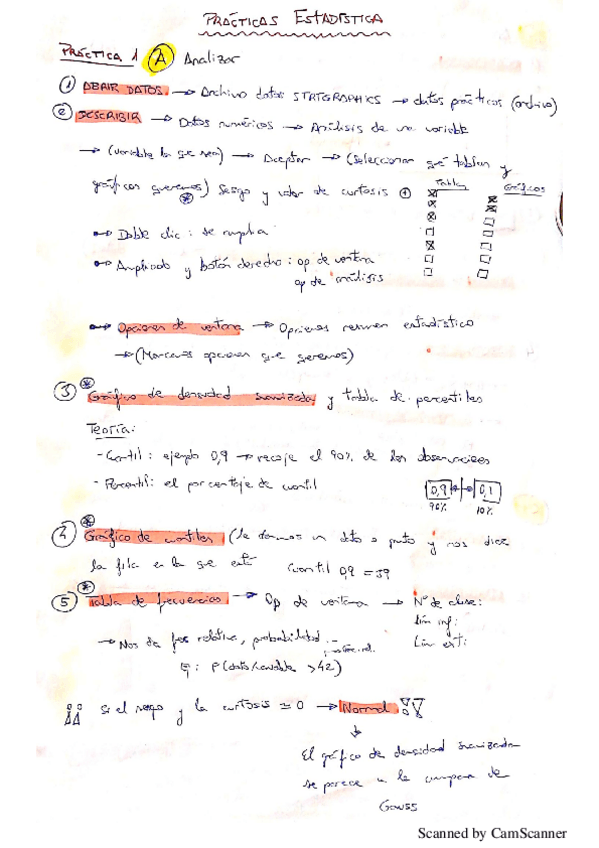 PRÁCTICAS ESTADÍSTICA
PRÁCTICA 1 A Analizar
① ABRIR DATOS → Archivo datos STATGRAPHICS → datos prácticas (archivo)
② DESCRIBIR → Datos numéricos → Análisis de una variable
→ (variable la que sea) → Aceptar → (seleccionar qué tablas y
gráficos queremos) Sesgo y valor de curtosis
Tabla Gráficos
Doble clic: se amplía
Ampliado y botón derecho: op de ventana
op de análisis
Opciones de ventana → Opciones resumen estadístico
→ (Marcamos opciones que queremos)
③ Gráfico de densidad suavizada y tabla de percentiles
Teoría:
- Cuantil: ejemplo 0,9 → recoje el 90% de las observaciones
- Percentil: el porcentaje de cuantil
0,9 0,1
90% 10%
Gráfico de cuantiles (le damos un dato o punto y nos dice
la fila en la que está cuantil 0,9 = 59
⑤ Tabla de frecuencias → Op de ventana → Nº de clase:
Lím inf:
→ Nos da frec relativa, probabilidad
Ej: P(dato/variable > 42)
si el sesgo y la curtosis = 0 → Normal
El gráfico de densidad suavizada
se parece a la campana de
Gauss
Scanned by CamScanner